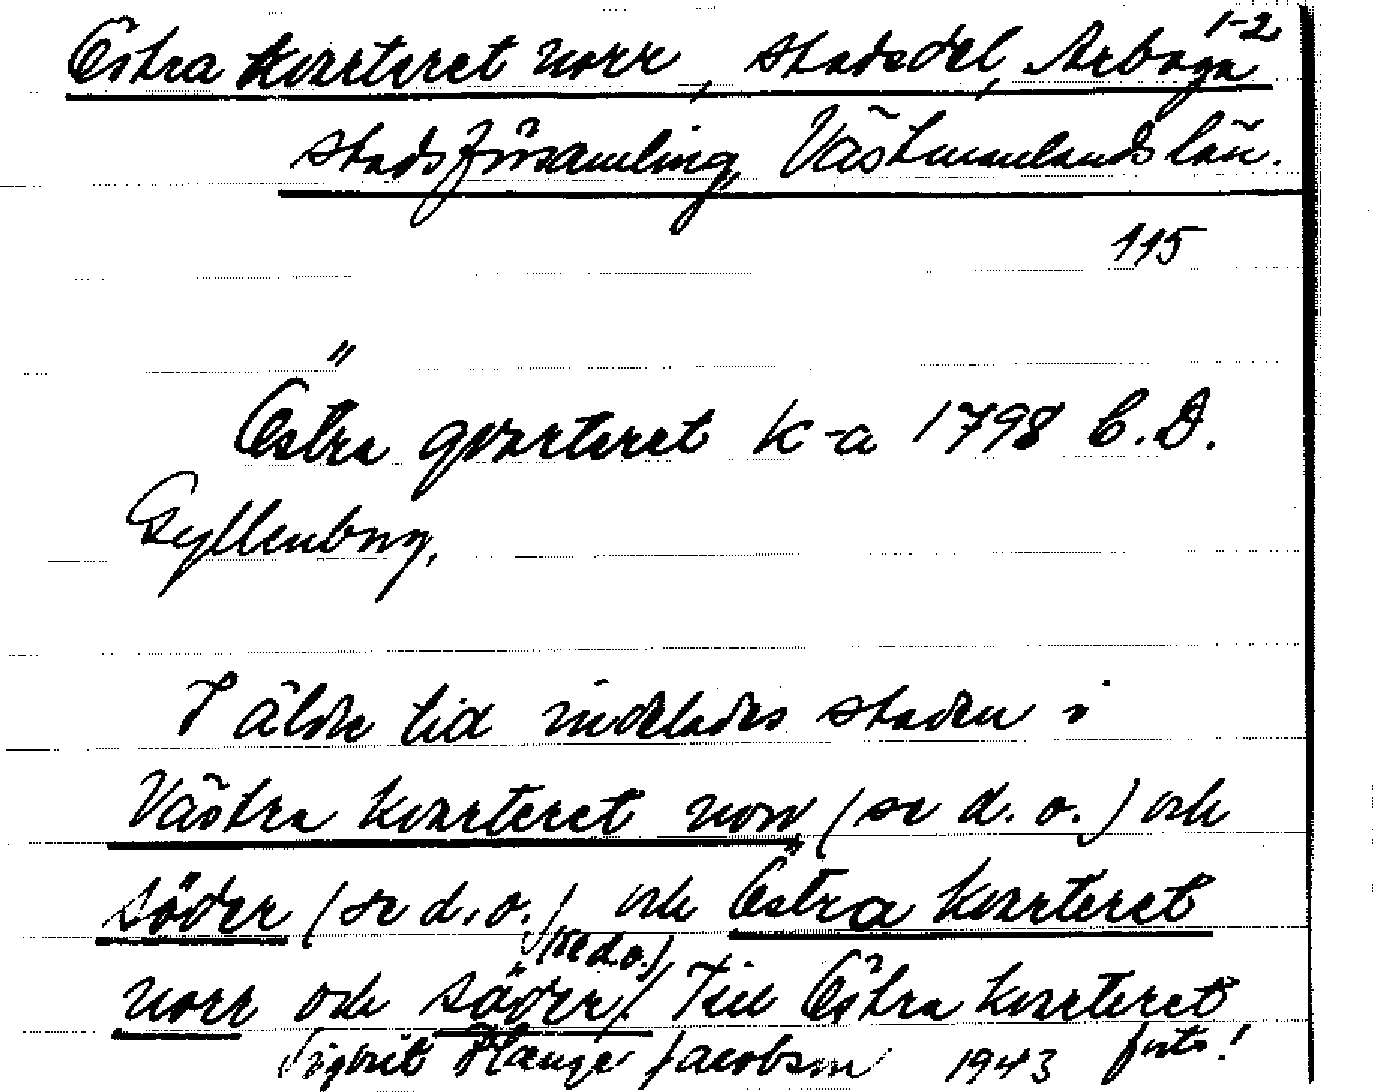 1-2
Östra kvarteret norr, stadsdel, Arboga
stadsförsamling, Västmanlands län.
115
Östra qvarteret k-a 1798 C.D.
Gyllenborg.
I äldre tid indelades staden i
Västra kvarteret norr (se d.o.) och
söder (se d.o.) och Östra kvarteret
norr och söder (se d.o.). Till Östra kvarteret
Sigurit Plange Jacobson 1943 forts!